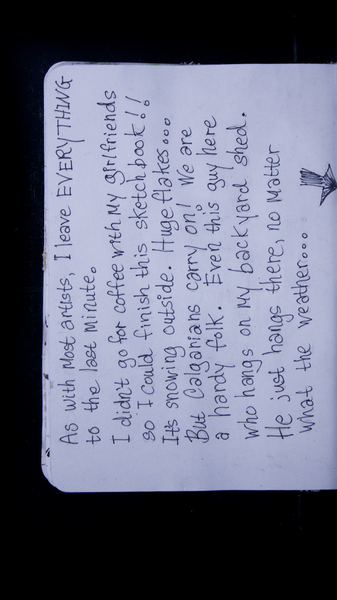 As with most artists, I leave EVERYTHING
to the last minute.
I didn't go for coffee with my girlfriends
so I could finish this sketchbook!!
It's snowing outside. Huge flakes...
But Calgarians carry on! We are
a hardy folk. Even this guy here
who hangs on my backyard shed.
He just hangs there, no matter
what the weather...